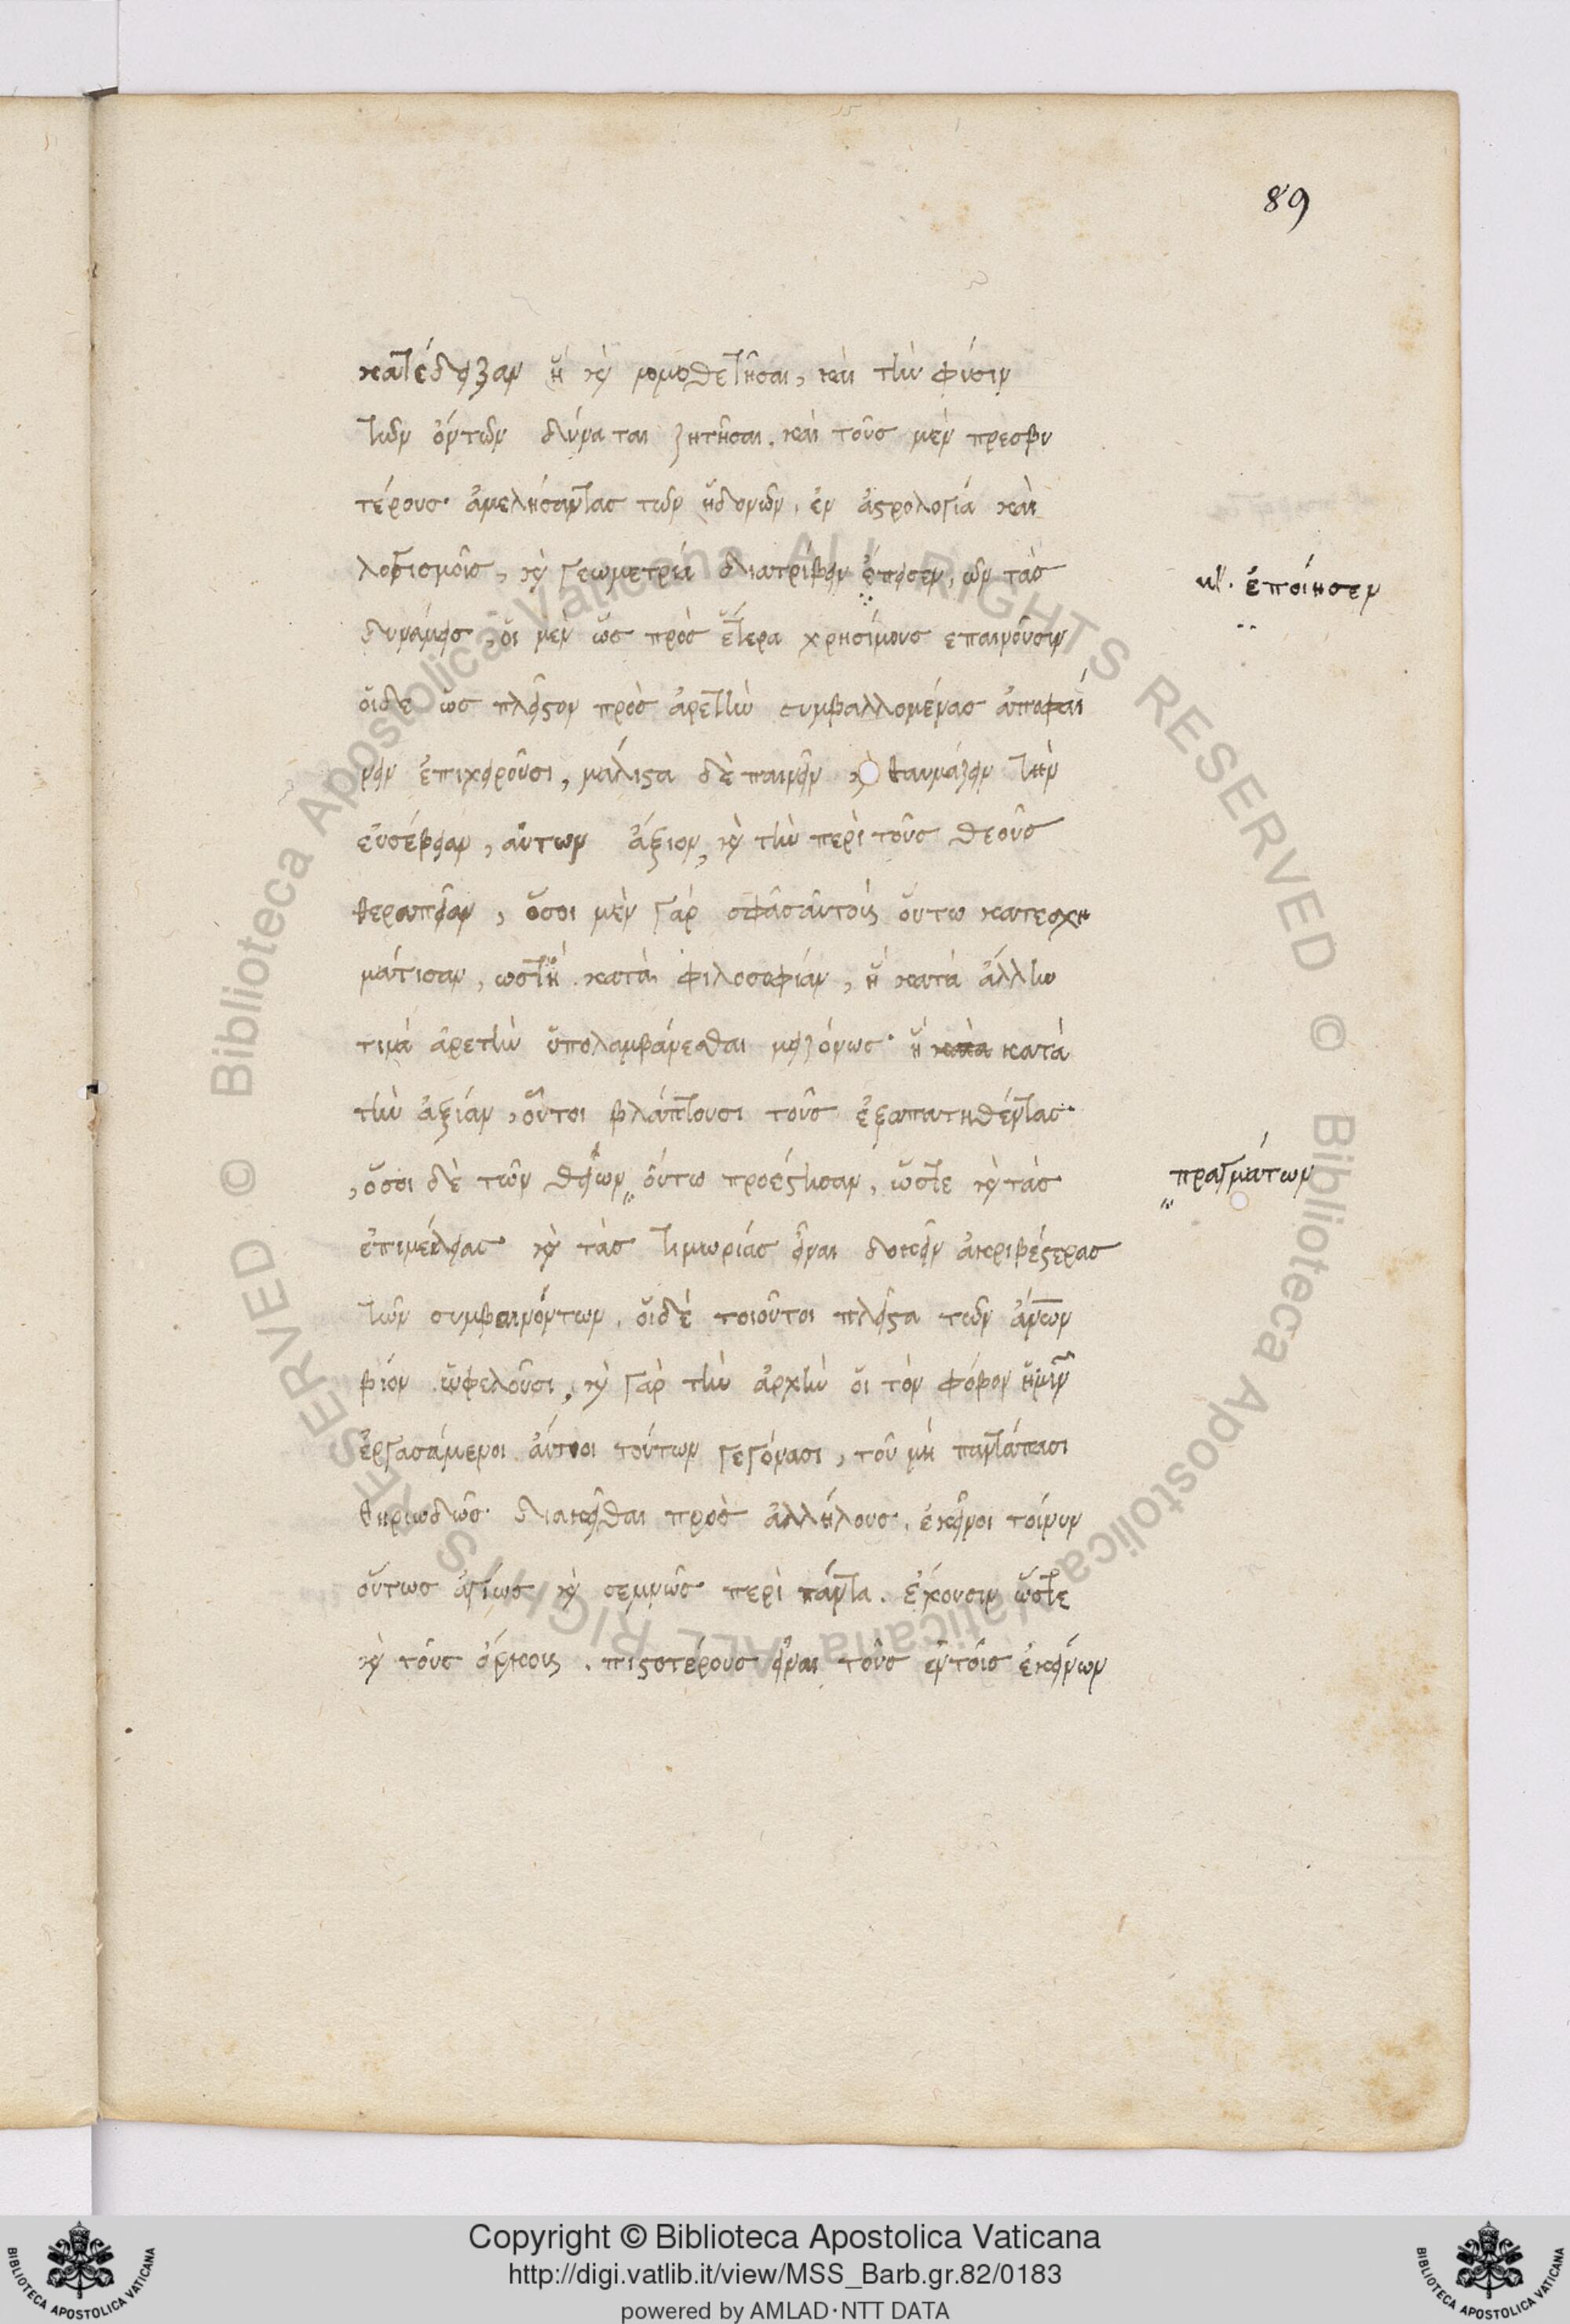 89
κατέδειξαν ἢ καὶ νομοθετῆσαι, καὶ τὴν φύσιν
τῶν ὄντων δύναται ζητῆσαι. καὶ τοὺς μὲν πρεσβυ
τέρους ἀμελήσαντας τῶν ἡδονῶν, ἐν ἀστρολογία καὶ
λογισμοῖς, καὶ γεωμετρία διατρίβειν ἔπεισεν, ὧν τὰς
κλ. ἐποίησεν
δυνάμεις, οἱ μὲν ὡς πρὸς ἕτερα χρησίμους επαινοῦσιν
οἱ δε ὡς πλεῖστον πρὸς ἀρετὴν συμβαλλομένας ἀποφαί
νειν ἐπιχειροῦσι, μάλιστα δὲ παινεῖν καὶ θαυμάζειν τὴν
εὐσέβειαν, αὐτων ἄξιον, καὶ τὴν περὶ τοὺς θεοὺς
θεραπείαν, ὅσοι μὲν γὰρ σφᾶσαυτοὺς οὕτω κατεσχη
μάτισαν, ωστἢ κατὰ φιλοσοφίαν, ἢ κατὰ ἄλλην
τινά ἀρετὴν ὑπολαμβάνεσθαι μειζόνως ἢ κατὰ
τὴν ἀξίαν, οὗτοι βλάπτουσι τοὺς ἐξαπατηθέντας
, ὅσοι δὲ τῶν θείων οὕτω προέστησαν, ὥστε καὶ τὰς
πραγμάτων
ἐπιμελείας καὶ τὰς τιμωρίας εἶναι δοκεῖν ἀκριβέστερας
τῶν συμβαινόντων, οἱ δὲ τοιοῦτοι πλεῖστα τῶν ἀνων
βίον ὠφελοῦσι, καὶ γὰρ τὴν ἀρχὴν οἱ τὸν φόβον ἡμῖν
ἐργασάμενοι αὔτιοι τούτων γεγόνασι, τοῦ μὴ παντάπασι
θηριωδῶς διακεῖσθαι πρὸς ἀλλήλους, ἐκεῖνοι τοίνυν
οὕτως ἁγίως καὶ σεμνῶς περὶ πάντα. ἔχουσιν ὥστε
καὶ τοὺς ὅρκους. πιστοτέρους εἶναι τοὺς ἐν τοῖς ἐκείνων
Copyright © Biblioteca Apostolica Vaticana
http://digi.vatlib.it/view/MSS_Barb.gr.82/0183
powered by AMLAD·NTT DATA